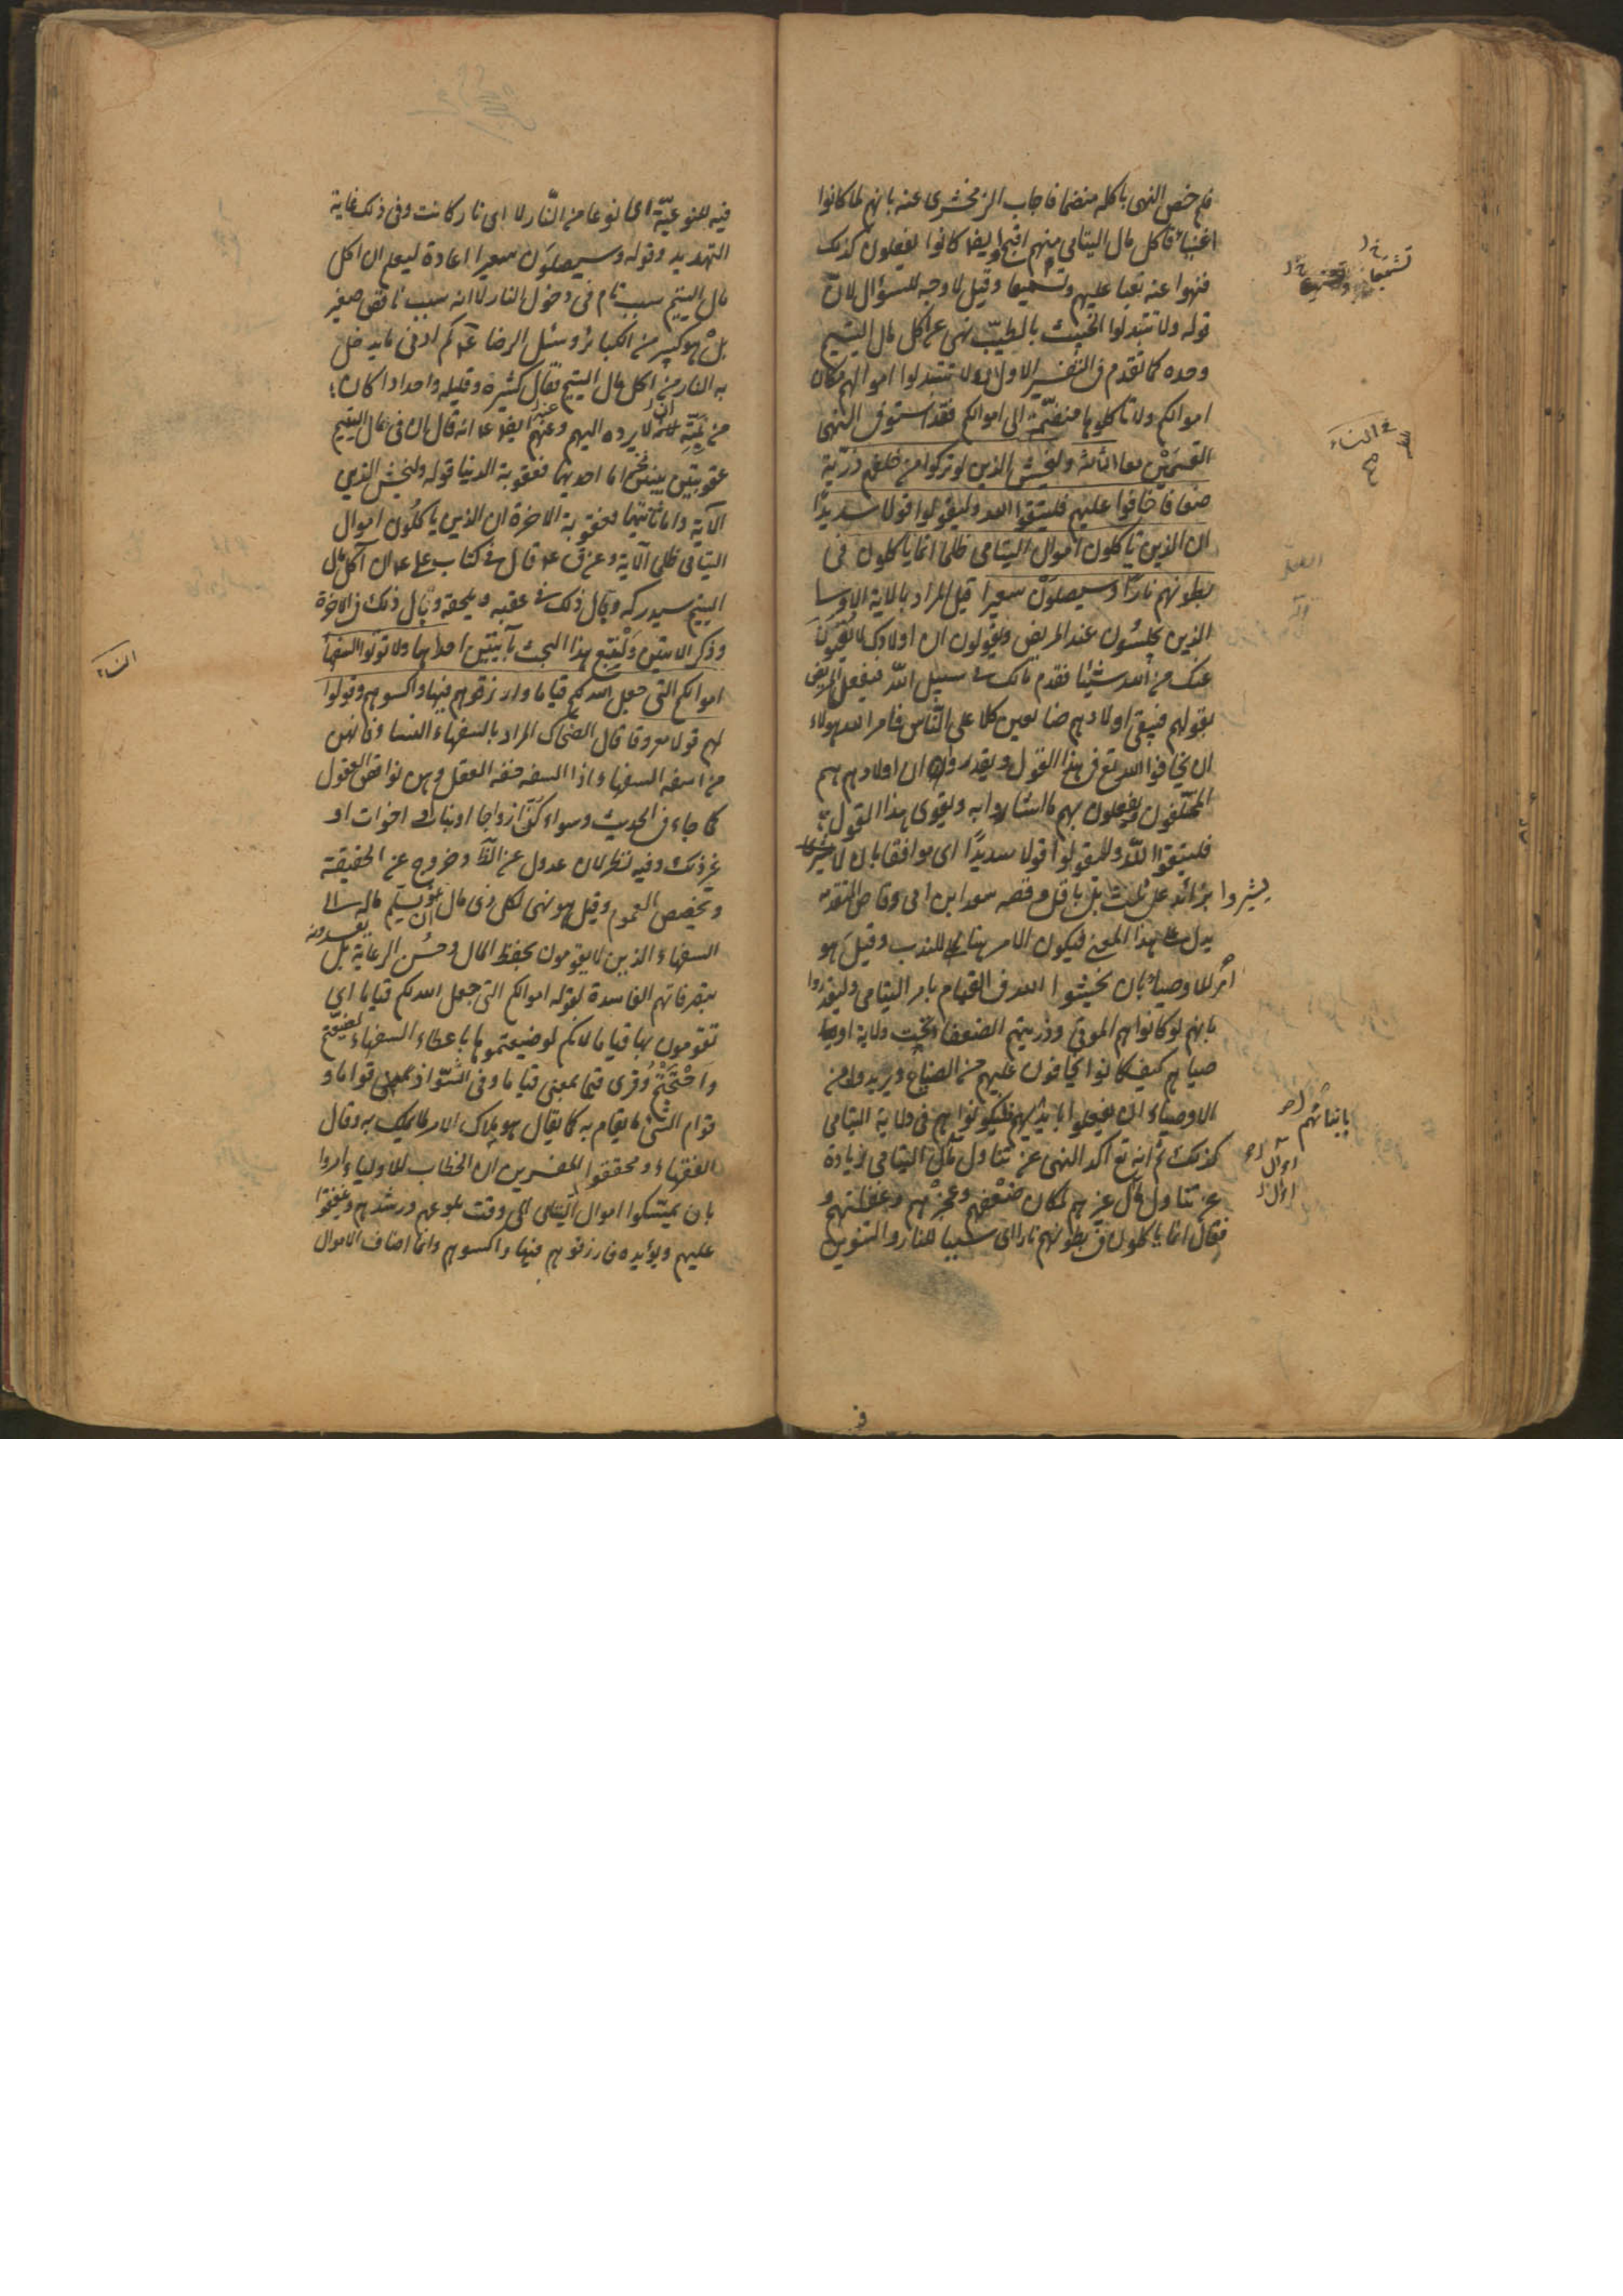 فلم خص النهى باكله منضما فاجاب الزمخشرى عنه بانهم لما كانوا
اغنياء فاكل مال اليتامى منهم اقبح وايضا كانوا يفعلون كذلك
فنهوا عنه نعيا عليهم وتشنيعا وقيل لا وجه للسؤال لان
قوله ولا تتبدلوا الخبيث بالطيّب نهى عن اكل مال اليتيم
وحده كما تقدم فى التفسير الاول ولا تتبدلوا اموالهم مكان
اموالكم ولا تاكلوها منضمّة الى اموالكم فقد استوفى النهى
القسمين معا الثالثة وليخش الذين لو تركوا من خلفهم ذرّية
ضعافا خافوا عليهم فليتقوا الله وليقولوا قولا سديدًا
ان الذين ياكلون اموال اليتامى ظلما انما ياكلون فى
بطونهم نارًا وسيصلون سعيرا قيل المراد بالاية الاوصيا
الذين يجلسون عند المريض ويقولون ان اولادك لا يغنون
عنك من الله شيئا فقدم مالك فى سبيل الله فيفعل المريض
بقولهم فيبقى اولادهم ضايعين كلا على النّاس فامر الله هولاء
ان يخافوا الله تع فى هذا القول ويقدروا ان اولادهم هم
المخلّفون ويفعلون بهم ما اشاروا به ويقوى هذا القول
فليتقوا اللّه وليقولوا قولا سديدًا اى موافقا بان لا
يشيروا بزائد على ثلث بل باقل وقصه سعد ابن ابى وقاص المتقدمه
يدل على هذا المعنى فيكون الامر هنا للندب وقيل هو
امر للاوصياء بان يخشوا الله فى القيام بامر اليتامى وليقدروا
بانهم لو كانوا هم الموتى وذريتهم الضعفاء تحت ولاية
صياهم كيف كانوا يخافون عليهم من الضياع ويريدون من
الاوصياء ان يفعلوا بابنائهم فليكونوا هم فى ولاية اليتامى
كذلك ثم انه تع اكد النهى عن تناول مال اليتامى زيادة
عن تناول مال غيرهم لمكان ضعفهم وعجزهم وغفلتهم و
فقال انما ياكلون فى بطونهم نارا اى سببا للنار والتنوين
النساء
بابنائهم
اموال
فيه للنوعيّة اى نوعا من النّار لا اى نار كانت وفى ذلك غاية
التهديد وقوله وسيصلون سعيرا اعادة ليعلم ان اكل
مال اليتيم سبب تام فى دخول النار لا انه سبب ناقص صغير
بل هو كبير من الكبائر وسئل الرضا ع كم ادنى ما يدخل
به النار من اكل مال اليتيم فقال كثيره وقليله واحد اذا كان
من نيّته ان لا يرده اليهم وعنهم ايضا ع انه قال ان فى مال اليتيم
عقوبتين بينتين اما احديهما فعقوبة الدنيا قوله وليخش الذين
الآية واما ثانيتهما فعقوبة الاخرة ان الذين ياكلون اموال
اليتامى ظلما الآية وعن ق ع قال فى كتاب على ع ان آكل مال
اليتيم سيدركه وبال ذلك فى عقبه ويلحقه وبال ذلك فى الاخرة
وذكر الايتين ولْنتبع هذا البحث بآيتين احدهما ولا تؤتوا السفهاء
اموالكم التى جعل الله لكم قياما وارزقوهم فيها واكسوهم وقولوا
لهم قولا معروفا قال الضحاك المراد بالسفهاء النساء فانهن
من اسفه السفهاء اذا السفه خفة العقل وهن نواقص العقول
كما جاء فى الحديث وسواء كنّ ازواجا او بنات او اخوات او
غير ذلك وفيه نظر لان عدول عن الظ وخروج عن الحقيقة
وتخصيص العموم وقيل هو نهى لكل ذى مال ان يسلم ماله الى
السفهاء الذين لا يقومون بحفظ المال وحسن الرعاية بل يفسدونه
بتصرفاتهم الفاسدة لقوله اموالكم التى جعل الله لكم قياما اى
تقومون بها قياما لانكم لو ضيعتموها باعطاء السفهاء لضعتم
واحتجتم وقرى قيما بمعنى قياما وفى الشواذ بمعنى قواما و
قوام الشئ ما يقام به كما يقال هو ملاك الامر لما يملك به وقال
الفقهاء ومحققوا المفسرين ان الخطاب للاولياء امروا
بان يمسكوا اموال اليتامى الى وقت بلوغهم ورشدهم وينفقوا
عليهم ويؤيده فارزقوهم فيها واكسوهم وانما اضاف الاموال
النساء